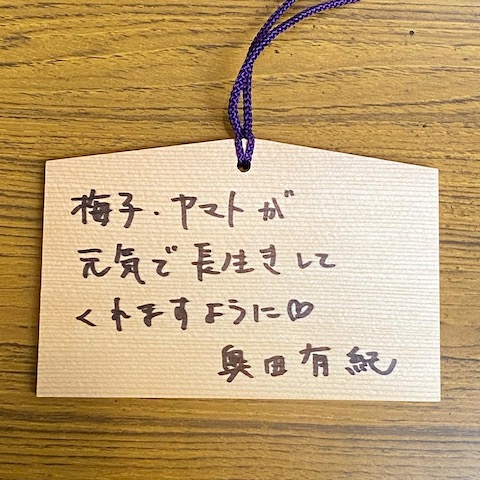 梅子・ヤマトが
元気で長生きして
くれますように♡
奥田有紀